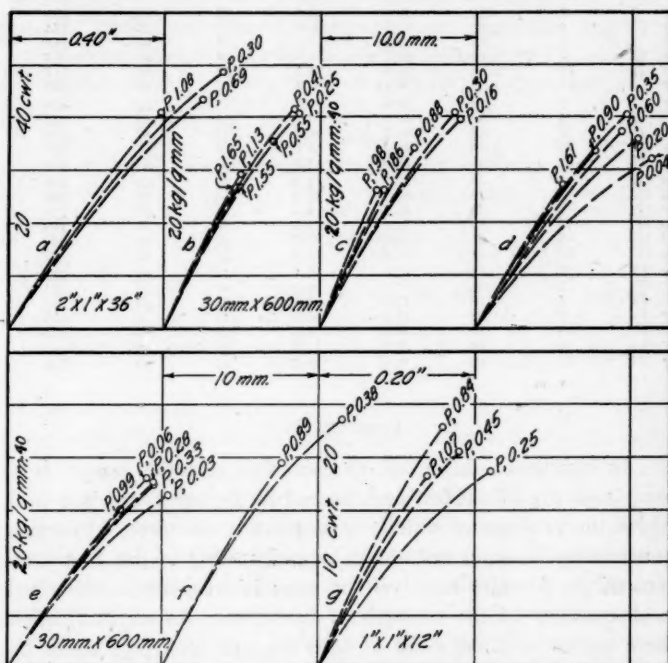 0.40"
10.0 mm.
40 cwt.
20
20 kg/qmm
20 kg/qmm. 40
P, 1.08
P, 0.30
P, 0.69
P, 1.65
P, 1.13
P, 1.55
P, 0.41
P, 0.25
P, 0.53
P, 1.98
P, 1.86
P, 0.88
P, 0.30
P, 0.16
P, 1.61
P, 0.90
P, 0.35
P, 0.60
P, 0.20
P, 0.04
a
b
c
d
2"x1"x36"
30 mm. X 600 mm.
10 mm.
0.20"
20 kg/qmm. 40
cwt.
10
20
P, 0.99
P, 0.06
P, 0.28
P, 0.33
P, 0.03
P, 0.89
P, 0.38
P, 0.84
P, 1.07
P, 0.45
P, 0.25
e
f
g
30 mm. X 600 mm.
1"x1"x12"